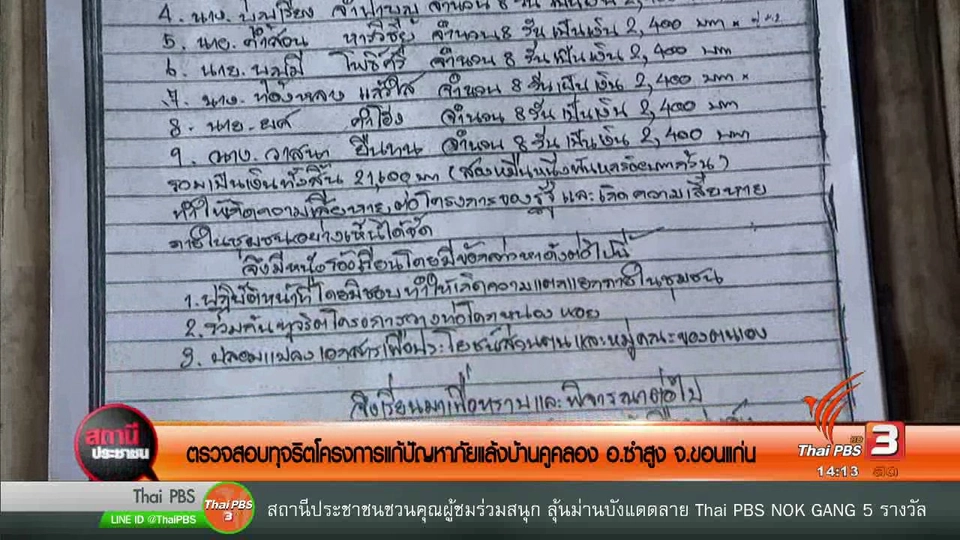 4. นาง. บุญเรียง จำปาบุญ จำนวน 8 วัน เป็นเงิน 2,400
5. นาย. คำสอน หารวิชัย จำนวน 8 วันเป็นเงิน 2,400 บาท
6. นาย. บุญมี โพธิ์ศรี จำนวน 8 วันเป็นเงิน 2,400 บาท
7. นาง. ทองหลาง แล้วใส จำนวน 8 วันเป็นเงิน 2,400 บาท
8. นาย. ยศ จำนวน 8 วันเป็นเงิน 2,400 บาท
9. นาง. วาสนา ยืนทน จำนวน 8 วันเป็นเงิน 2,400 บาท
รวมเป็นเงินทั้งสิ้น 21,600 บาท (สองหมื่นหนึ่งพันหกร้อยบาทถ้วน)
ทำให้เกิดความเสียหายต่อโครงการของรัฐ และเกิดความเสียหาย
ภายในชุมชนอย่างเห็นได้ชัด
จึงมีหนังร้องเรียนโดยมีข้อกล่าวหาดังต่อไปนี้
1. ปฏิบัติหน้าที่โดยมิชอบทำให้เกิดความแตกแยกภายในชุมชน
2. ร่วมกันทุจริตโครงการวางท่อโคกหนองหอย
3. ปลอมแปลงเอกสารเพื่อประโยชน์ส่วนตนและหมู่คณะของตนเอง
จึงเรียนมาเพื่อทราบและพิจารณาต่อไป
สถานี
ประชาชน
ตรวจสอบทุจริตโครงการแก้ปัญหาภัยแล้งบ้านคูคลอง อ.ซำสูง จ.ขอนแก่น
Thai PBS HD 3
14:13 สด
Thai PBS
LINE ID @ThaiPBS
Thai PBS 3
สถานีประชาชนชวนคุณผู้ชมร่วมสนุก ลุ้นม่านบังแดดลาย Thai PBS NOK GANG 5 รางวัล